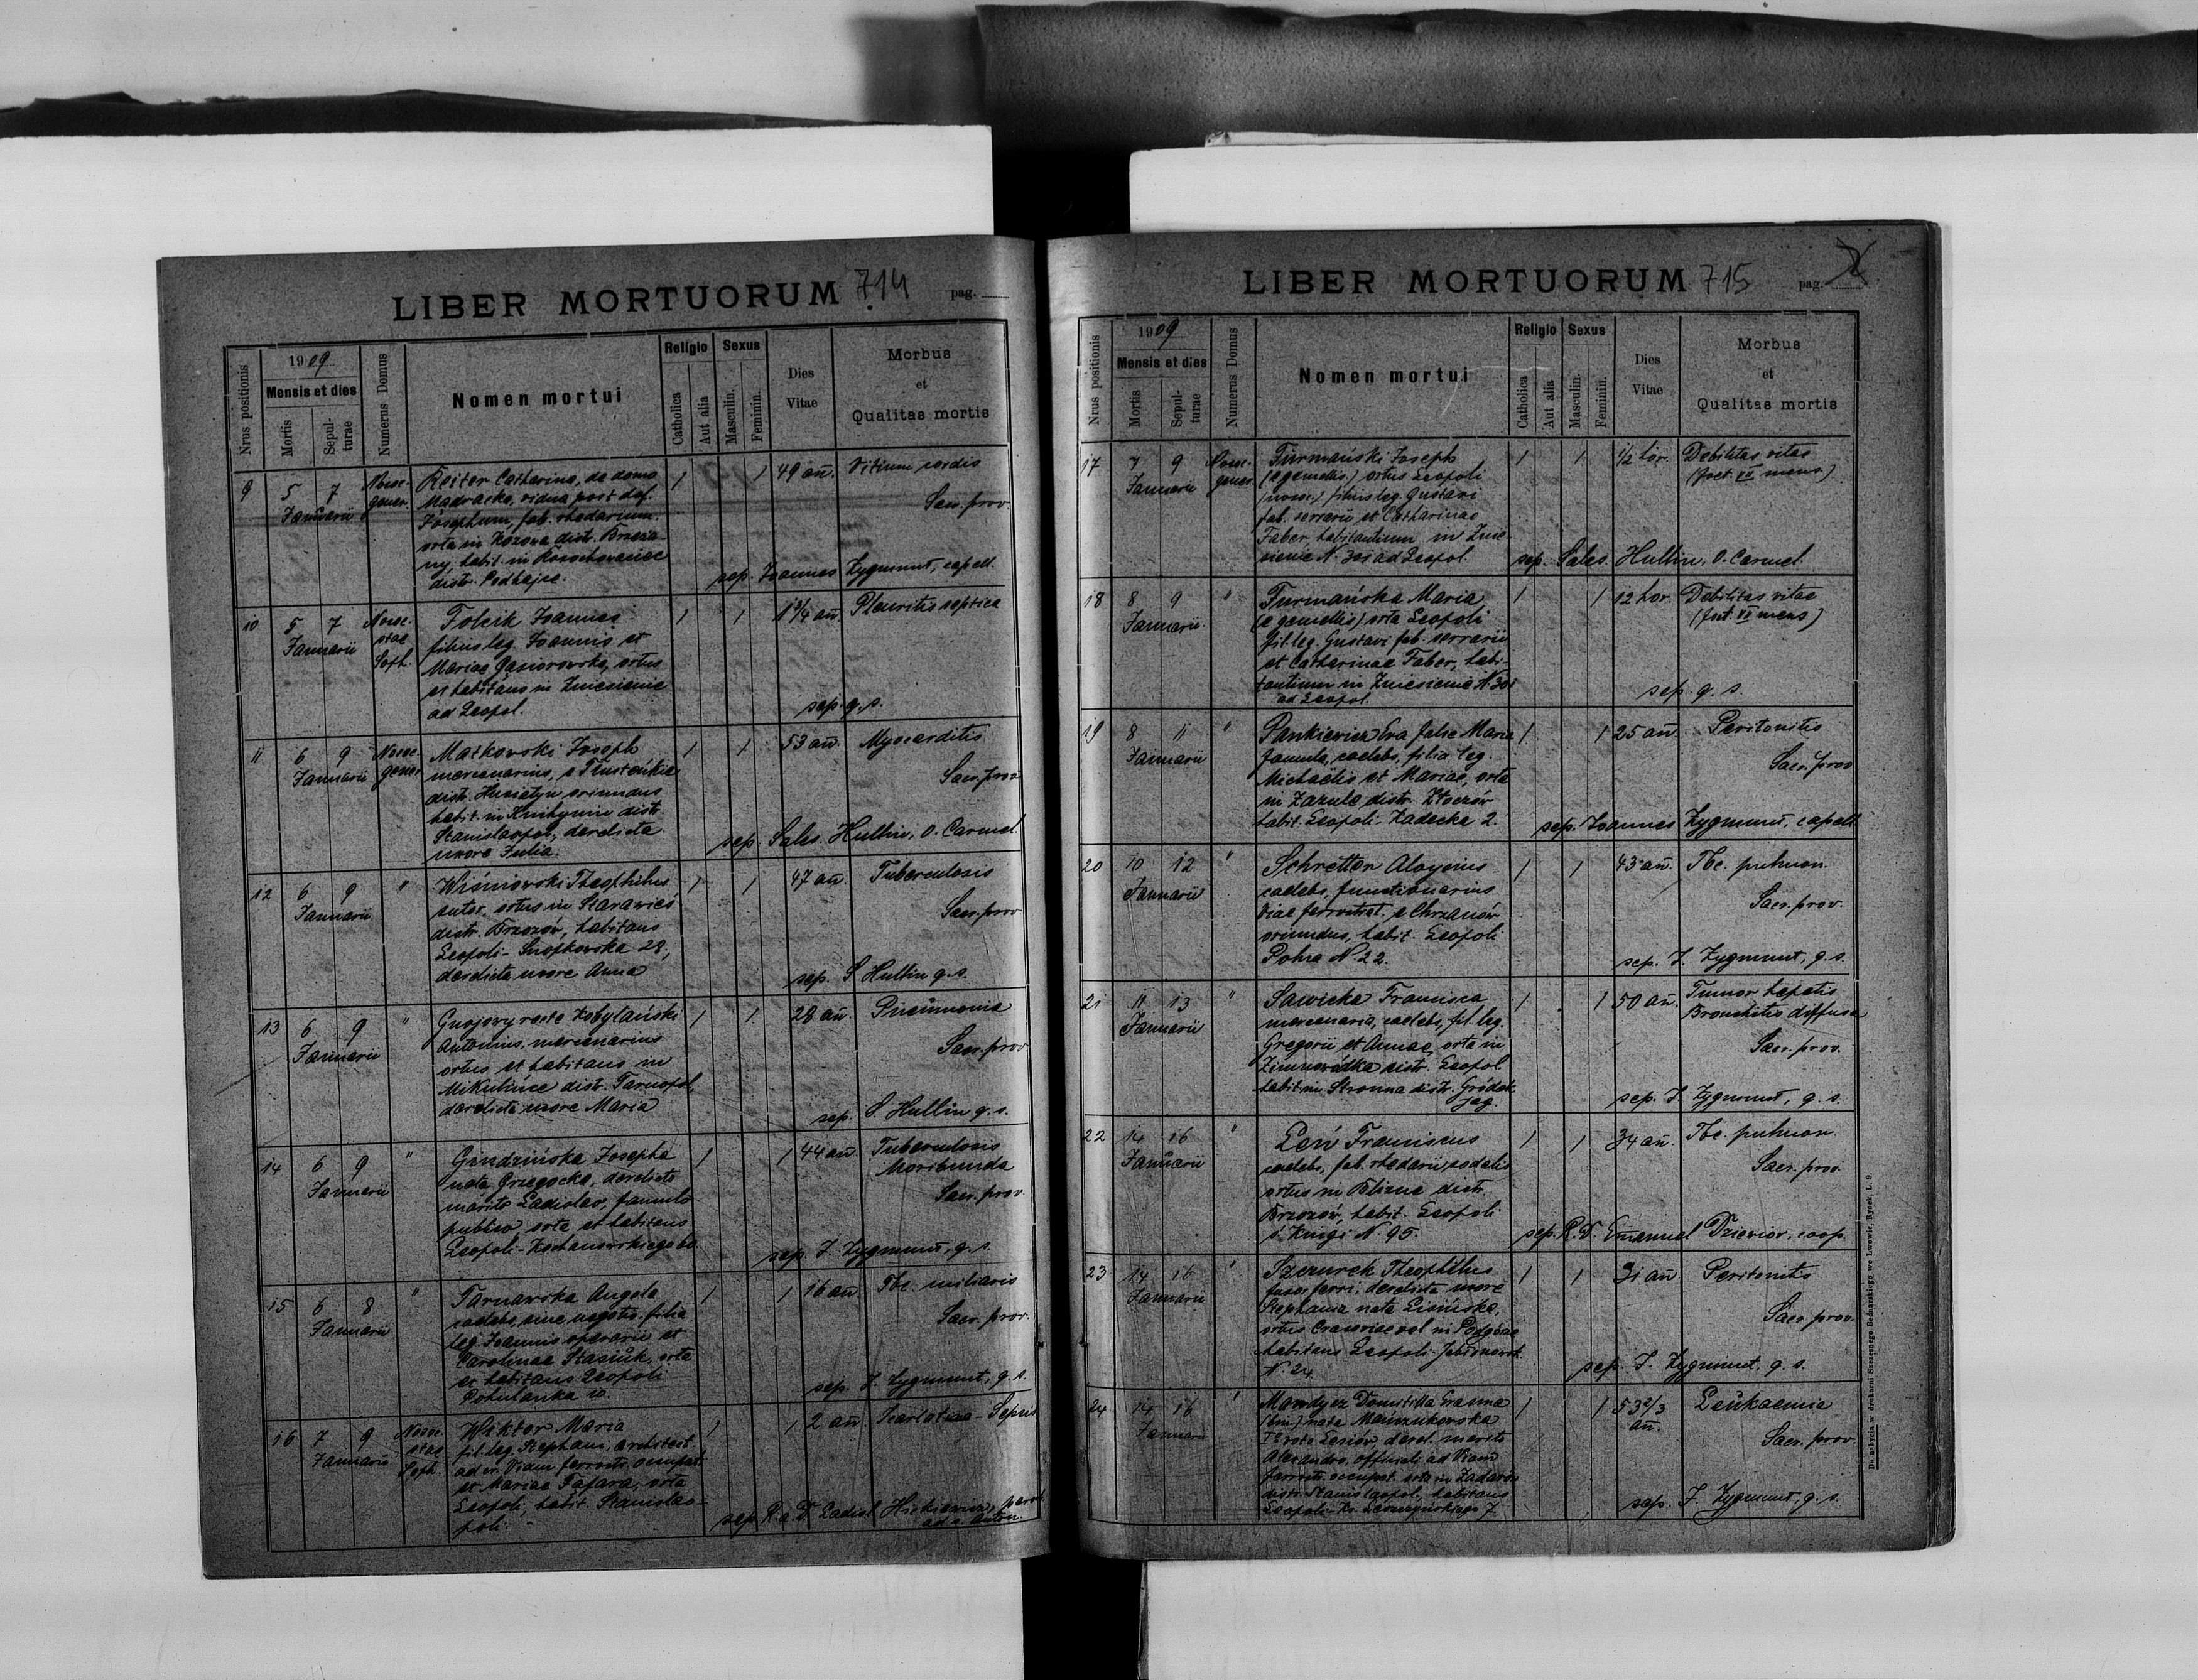 LIBER MORTUORUM 714 pag.
Nrus positionis
1909
Mensis et dies
Mortis
Sepul-
turae
Numerus Domus
Nomen mortui
Religio
Catholica
Aut alia
Sexus
Masculin.
Feminin.
Dies
Vitae
Morbus
et
Qualitas mortis
9 5 7 Januarii Nosoc. gener.
Reiter Catharina, de domo
Madracka, vidua post def.
Josephum, fab. rhedarium.
orta in Kozowa distr. Brzeża-
ny, habit. in
distr. Podhajce.
1 1 49 an. Vitium cordis
Sacr. prov.
sep. Joannes Zygmunt, capell.
10 5 7 Januarii Nosoc. stae Soph.
Joannes
filius leg. Joannis et
Mariae Gąsiorowska, ortus
et habitans in Zniesienie
ad Leopol.
1 1 1 3/4 an. Pleuritis septica
sep. q. s.
11 6 9 Januarii Nosoc. gener.
Matkowski Joseph
mercenarius, e Tłusteńkie
distr. Husiatyn oriundus
habit. in Knihynin distr.
Stanislaopol., derelicta
uxore Julia.
1 1 53 an. Myocarditis
Sacr. prov.
sep. Sales. Hullin, O. Carmel.
12 6 9 Januarii "
Wiśniowski Theophilus
sutor, ortus in Starawieś
distr. Brzozów, habitans
Leopoli - Snopkowska 28,
derelicta uxore Anna
1 1 47 an. Tuberculosis
Sacr. prov.
sep. S. Hullin q. s.
13 6 9 Januarii "
Gnojowy recte Kobylański
Antonius, mercenarius
ortus et habitans in
Mikulińce distr. Tarnopol,
derelicta uxore Maria
1 1 28 an. Pneumonia
Sacr. prov.
sep. S. Hullin q. s.
14 6 9 Januarii "
Josepha
nata Grzegocka, derelicto
marito Ladislao, famulo
publico, orta et habitans
Leopoli - Kochanowskiego
1 1 44 an. Tuberculosis
Moribunda
Sacr. prov.
sep. J. Zygmunt, q. s.
15 6 8 Januarii "
Tarnawska Angela
caelebs, sine negotio, filia
leg. Joannis operarii et
Carolinae Stasiuk, orta
et habitans Leopoli
Pohulanka 10.
1 1 16 an. Tbc. miliaris
Sacr. prov.
sep. J. Zygmunt, q. s.
16 7 9 Januarii Nosoc. stae Soph.
Wiktor Maria
fil. leg. Stephani, architect.
ad Viam ferrostr. occupat.
et Mariae Fafara, orta
Leopoli, habit. Stanislao-
poli.
1 1 2 an. Scarlatina - Sepsis
sep. R. D. Ladisl. paroch.
ad s. Anton.
LIBER MORTUORUM 715 pag.
Nrus positionis
1909
Mensis et dies
Mortis
Sepul-
turae
Numerus Domus
Nomen mortui
Religio
Catholica
Aut alia
Sexus
Masculin.
Feminin.
Dies
Vitae
Morbus
et
Qualitas mortis
17 7 9 Januarii Nosoc. gener.
Furmański Joseph
(e gemellis) ortus Leopoli
(nosoc.) filius leg. Gustavi
fab. serrarii et Catharinae
Faber, habitantium in Znie-
sienie N. 301 ad Leopol.
1 1 1/2 hor. Debilitas vitae
mens)
sep. Sales. Hullin, O. Carmel.
18 8 9 Januarii "
Furmańska Maria
(e gemellis) orta Leopoli
fil. leg. Gustavi fab. serrarii
et Catharinae Faber, habi-
tantium in Zniesienie N. 301
ad Leopol.
1 1 12 hor. Debilitas vitae
mens)
sep. q. s.
19 8 11 Januarii "
Pankiewicz Eva false Maria
famula, caelebs, filia leg.
Michaëlis et Mariae, orta
in Zazule distr. Złoczów
habit. Leopoli - Zadecka 2.
1 1 25 an. Peritonitis
Sacr. prov.
sep. Joannes Zygmunt, capell.
20 10 12 Januarii "
Schretter Aloysius
caelebs, functionarius
viae ferrostrat. e Chrzanów
oriundus, habit. Leopoli
N. 22.
1 1 43 an. Tbc. pulmon.
Sacr. prov.
sep. J. Zygmunt, q. s.
21 11 13 Januarii "
Sawicka Francisca
mercenaria, caelebs, fil. leg.
Gregorii et Annae, orta in
Zimnawódka distr. Leopol
habit. in Stronna distr. Gródek
Jag.
1 1 50 an. Tumor hepatis
Bronchitis diffusa
Sacr. prov.
sep. J. Zygmunt, q. s.
22 14 16 Januarii "
Franciscus
caelebs, fab. rhedarii sodalis
ortus in Blizne distr.
Brzozów, habit. Leopoli
ś. Kingi N. 95.
1 1 34 an. Tbc. pulmon.
Sacr. prov.
sep. R. D. Emanuel Dziewior, coop.
23 14 16 Januarii "
Szczurek Theophilus
fusor ferri, derelicta uxore
Stephania nata Lisińska,
ortus Cracoviae vel in Podgórze
habitans Leopoli - Jabłonowsk.
N. 24.
1 1 31 an. Peritonitis
Sacr. prov.
sep. J. Zygmunt, q. s.
24 14 16 Januarii "
Mandycz Domitilla
nata
derel. marito
Alexandro, officiali ad Viam
ferrostr. occupat. orta in
distr. Stanislaopol., habitans
Leopoli 7
1 1 53 2/3 an. Leukaemia
Sacr. prov.
sep. J. Zygmunt, q. s.
Do nabycia w drukarni Szczęsnego Bednarskiego we Lwowie, Rynek, L. 9.